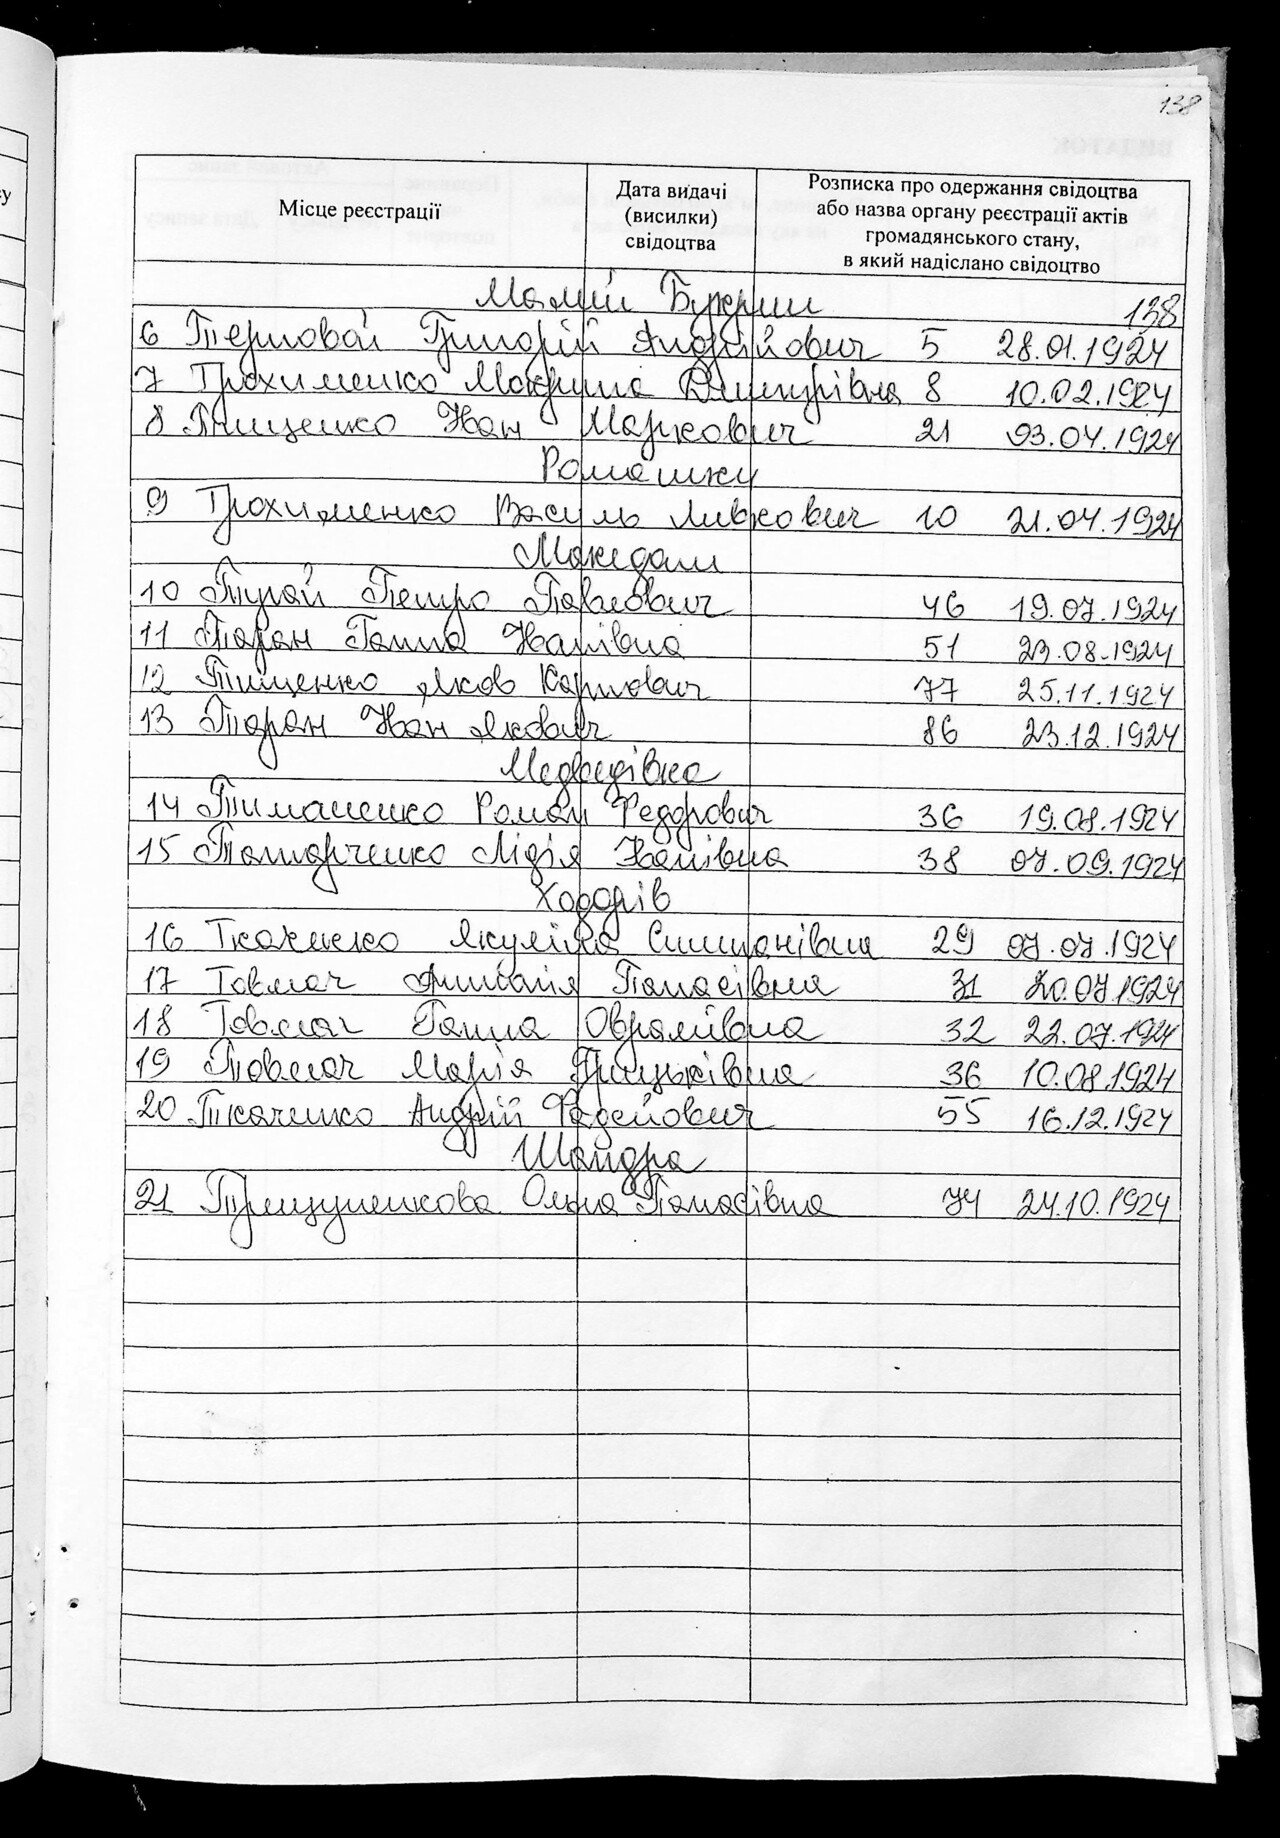 138
Місце реєстрації
Дата видачі
(висилки)
свідоцтва
Розписка про одержання свідоцтва
або назва органу реєстрації актів
громадянського стану,
в який надіслано свідоцтво
Малий Букрин
138
6 Терновой Григорій Андрійович 5 28.01.1924
7 Трохименко Макрина Дмитрівна 8 10.02.1924
8 Тищенко Іван Маркович 21 03.04.1924
Ромашки
9 Трохименко Василь Левкович 10 21.04.1924
Македани
10 Петро Павлович 46 19.07.1924
11 Таран Ганна Іванівна 51 23.08.1924
12 Тищенко Яков Карпович 77 25.11.1924
13 Таран Іван Якович 86 23.12.1924
Медведівка
14 Тимашенко Роман Федорович 36 19.08.1924
15 Лідія Іванівна 38 07.09.1924
Ходорів
16 Якуліна 29 07.07.1924
17 Товмач Панасівна 31 20.07.1924
18 Товмач Ганна Оврамівна 32 22.07.1924
19 Товмач Марія Грицьківна 36 10.08.1924
20 Ткаченко Андрій Фадейович 55 16.12.1924
Шандра
21 Ольга Панасівна 74 24.10.1924